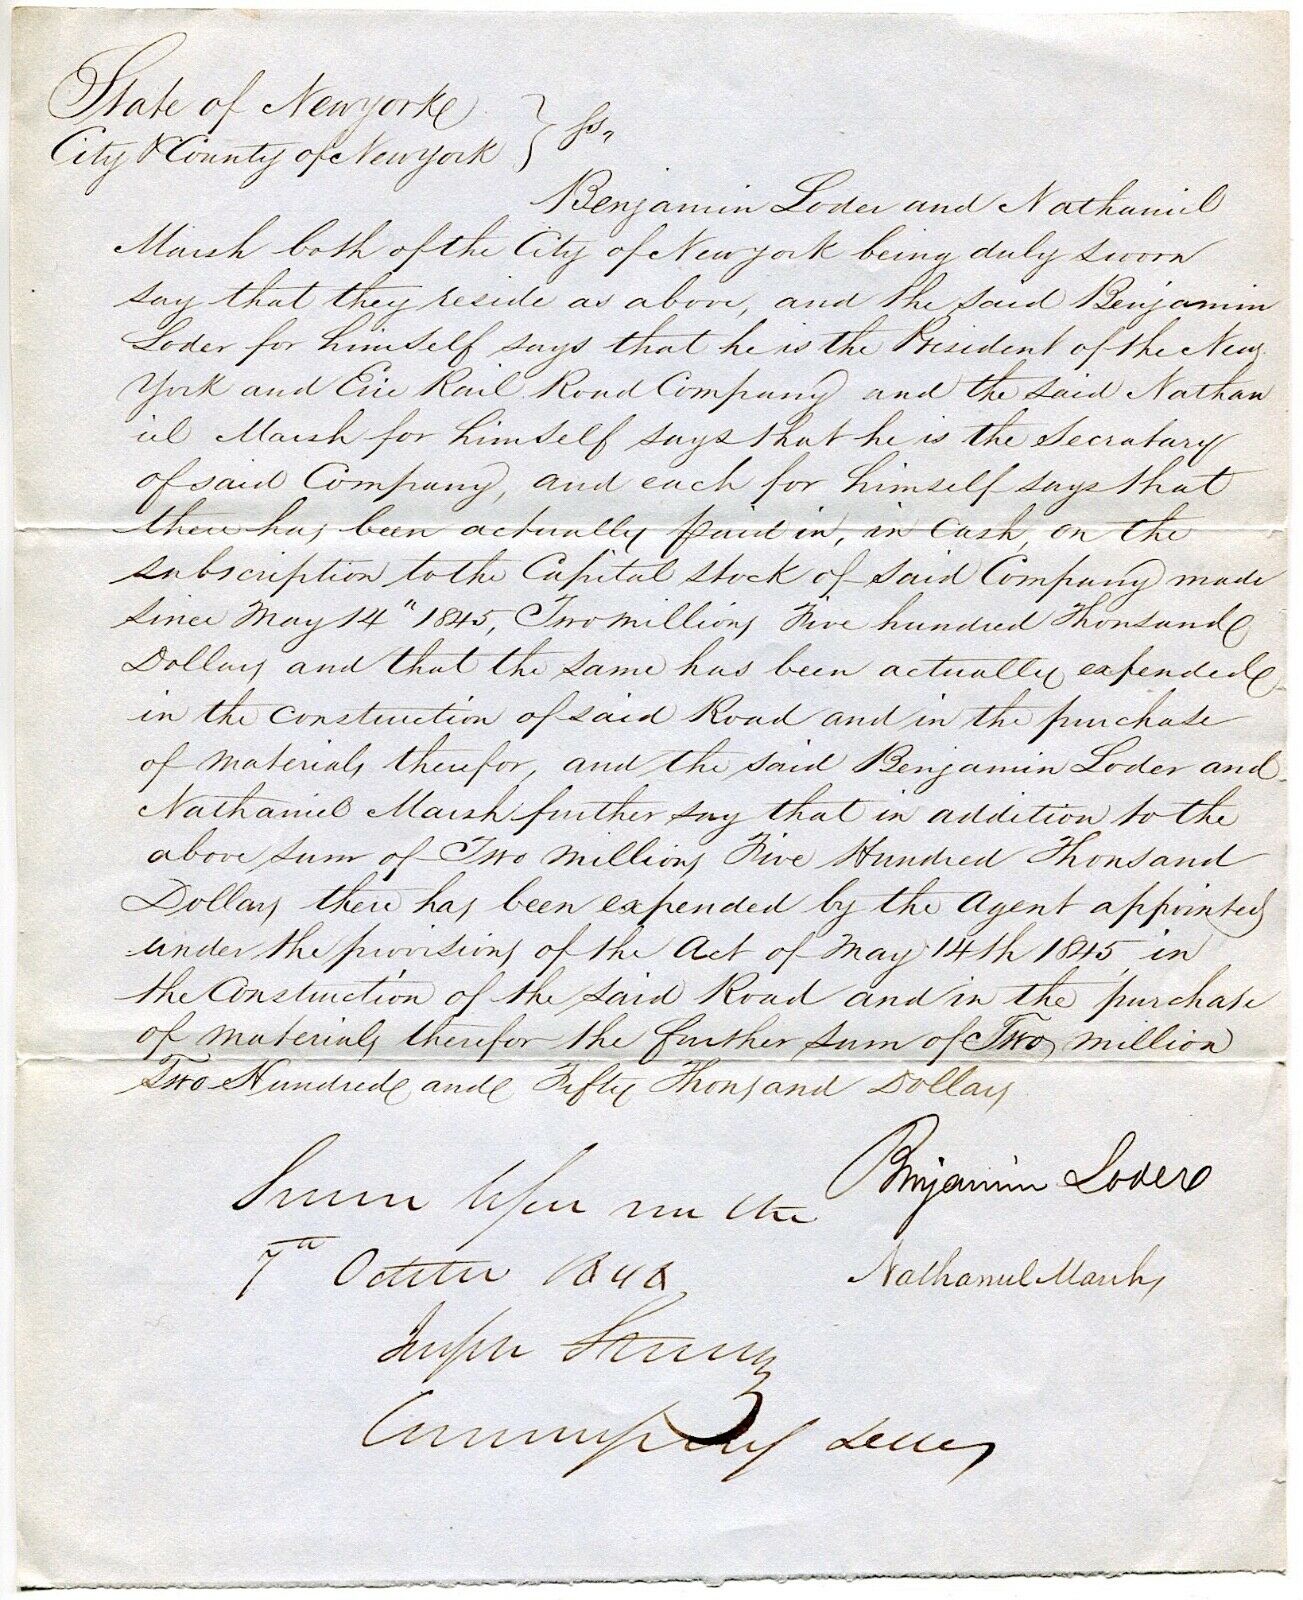 State of New york
City & County of New york } ss,
Benjamin Loder and Nathaniel
Marsh both of the City of New york being duly sworn
say that they reside as above, and the said Benjamin
Loder for himself says that he is the President of the New
York and Erie Rail Road Company and the said Nathan
iel Marsh for himself says that he is the Secratary
of said Company, and each for himself says that
there has been actually paid in, in cash, on the
subscription to the Capital stock of said Company made
since May 14" 1845, Two millions Five hundred Thousand
Dollars and that the same has been actually expended
in the construction of said Road and in the purchase
of materials therefor, and the said Benjamin Loder and
Nathaniel Marsh further say that in addition to the
above sum of Two millions Five Hundred Thousand
Dollars there has been expended by the Agent appointed
under the provisions of the Act of May 14th 1845 in
the Construction of the said Road and in the purchase
of materials therefor the further sum of Two million
Two Hundred and Fifty Thousand Dollars
Sworn Upon on the
7th October 1848
Benjamin Loder
Nathaniel Marsh,
Joseph Strong
Commissioner of Deeds